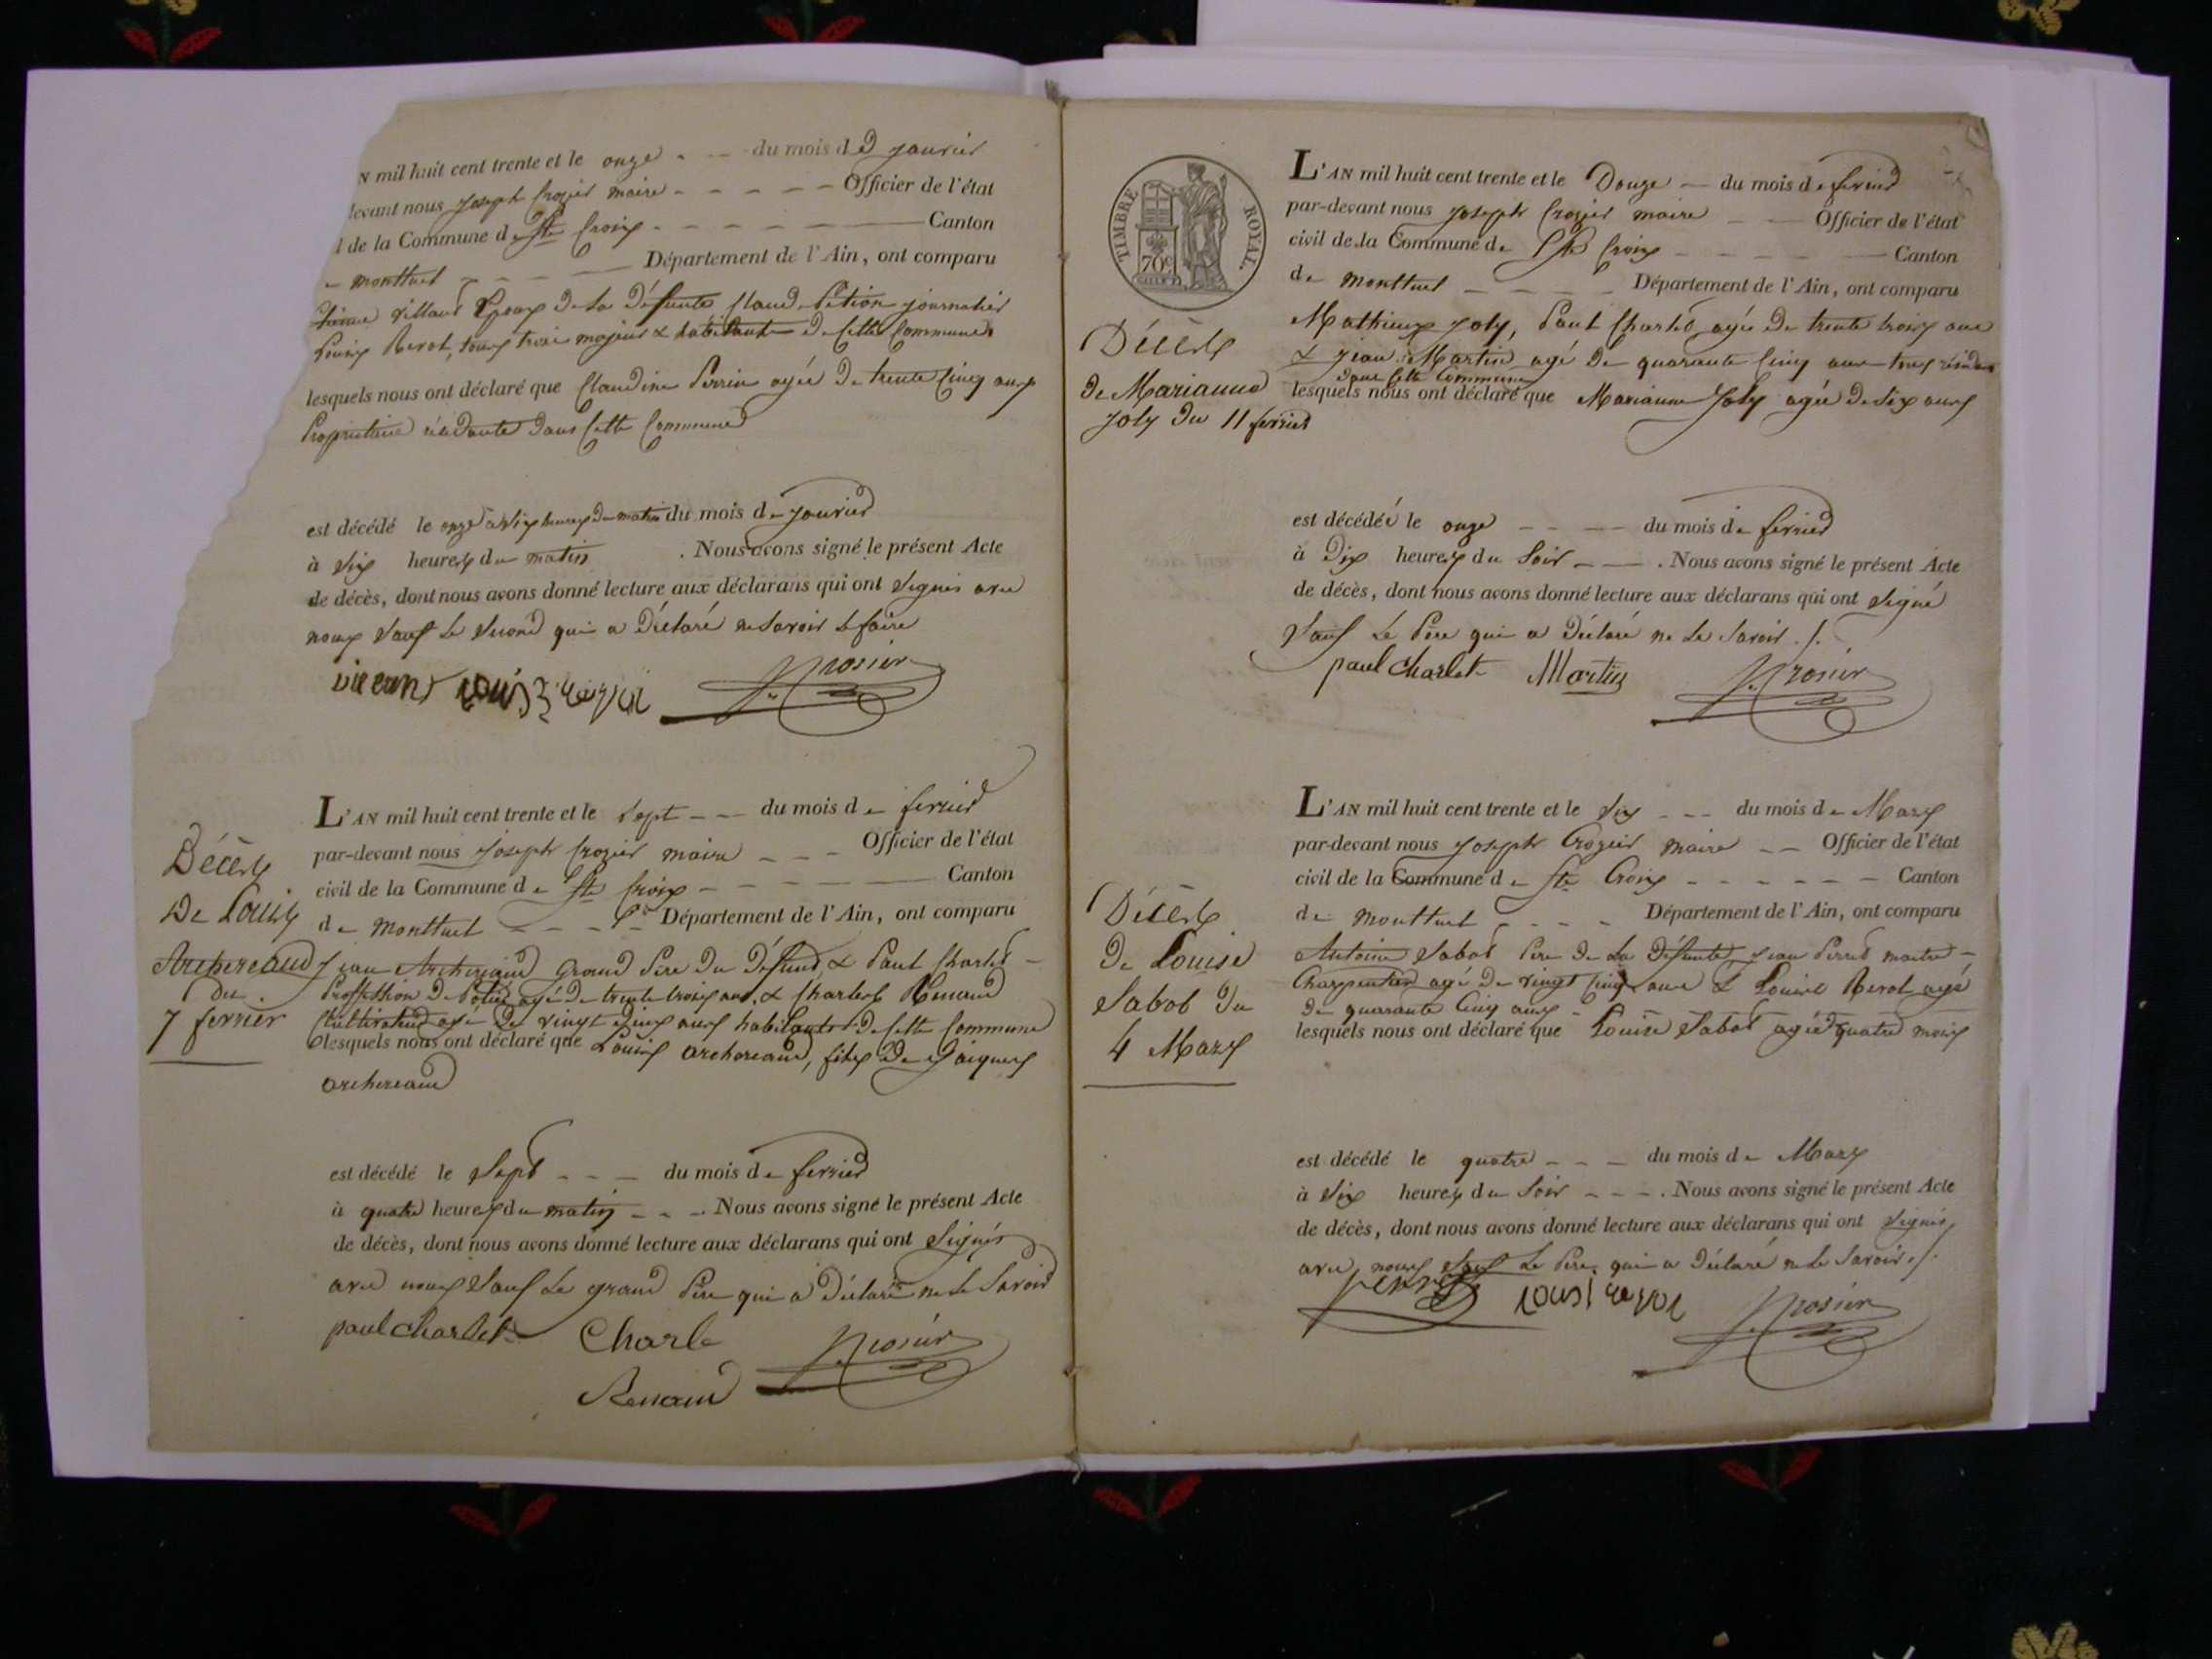 N mil huit cent trente et le onze du mois de janvier
devant nous joseph Crozier maire Officier de l'état
l de la Commune de Ste Croix Canton
montluel Département de l'Ain, ont comparu
villand Epoux De la Défunte, Claude journalier
Louis Revol, tous trois majeurs & habitants De Cette Commune
lesquels nous ont déclaré que Claudine Perrin agée De trente Cinq ans
Proprietaire résidante dans Cette Commune
est décédé le onze à six heures du matin du mois de janvier
à six heures du matin . Nous avons signé le présent Acte
de décès, dont nous avons donné lecture aux déclarans qui ont signés avec
nous sauf le second qui a Déclaré ne savoir le faire
Décès
De Louis
Archereaud
du
7 ferrier
L'AN mil huit cent trente et le sept du mois de ferrier
par-devant nous joseph Crozier maire Officier de l'état
civil de la Commune de Ste Croix Canton
de montluel Département de l'Ain, ont comparu
jean Archereaud grand Pere Du Défund & Paul Charlet
Proffession De agé De trente trois ans, & Charles Renaud
Cultivateur agé De vingt Cinq ans habitants De Cette Commune
lesquels nous ont déclaré que Louis archereaud, fils De Jaiques
archereaud
est décédé le sept du mois de ferrier
à quatre heures du matin . Nous avons signé le présent Acte
de décès, dont nous avons donné lecture aux déclarans qui ont signés
avec nous sauf Le grand Pere qui a Déclaré ne le savoir
paul charlet Charle JCrosier
Renaud
TIMBRE ROYAL.
70c
L'AN mil huit cent trente et le Douze du mois de ferrier
par-devant nous joseph Crozier maire Officier de l'état
civil de la Commune de Ste Croix Canton
de montluel Département de l'Ain, ont comparu
Décès
de Marianne
joly Du 11 ferrier
Mathieux joly, Paul Charlet agée De trente trois ans
& jean Martin agé De quarante Cinq ans tous
dans Cette Commune
lesquels nous ont déclaré que Marianne Joly agée De six ans
est décédée le onze du mois de ferrier
à Dix heures du soir . Nous avons signé le présent Acte
de décès, dont nous avons donné lecture aux déclarans qui ont signé
sauf Le Pere qui a Déclaré ne Le savoir ./.
paul charlet Martin JCrosier
Décès
De Louise
Sabot Du
4 Mars
L'AN mil huit cent trente et le six du mois de Mars
par-devant nous joseph Crozier maire Officier de l'état
civil de la Commune de Ste Croix Canton
de montluel Département de l'Ain, ont comparu
Antoine Sabot Pere De La Défunte, jean Perret maitre
Charpentier agé De vingt Cinq ans & Louis Revol agé
De quarante Cinq ans
lesquels nous ont déclaré que Louise Sabot agée quatre mois
est décédé le quatre du mois de Mars
à six heures du soir . Nous avons signé le présent Acte
de décès, dont nous avons donné lecture aux déclarans qui ont signés
avec nous sauf Le Pere qui a Déclaré ne le savoir ./.
JCrosier